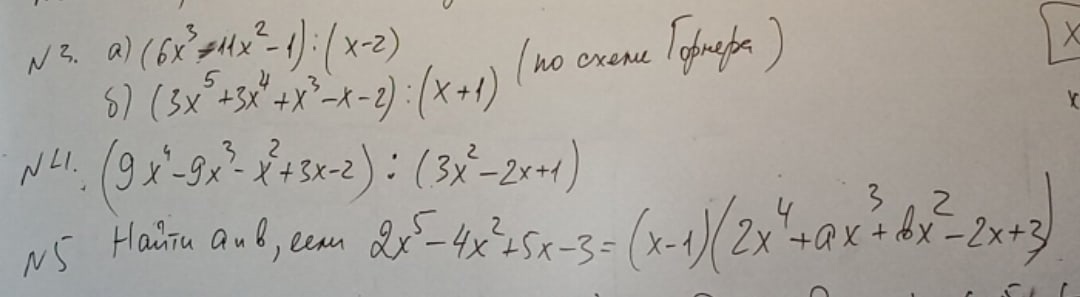 N3. а) (6x³-11x²-1):(x-2) (по схеме Горнера)
б) (3x⁵+3x⁴+x³-x-2):(x+1)
N4. (9x⁴-9x³-x²+3x-2) : (3x²-2x+1)
N5 Найти a и b, если 2x⁵-4x²+5x-3=(x-1)(2x⁴+ax³+bx²-2x+3)